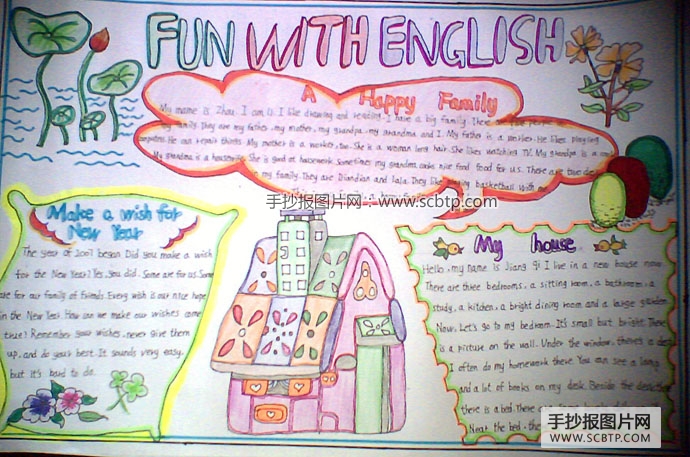 FUN WITH ENGLISH
A Happy Family
My name is Zhou. I am 11. I like drawing and reading. I have a big family. There are
my family. They are my father, my mother, my grandpa, my grandma and I. My father is a worker. He likes playing
computers. He can repair things. My mother is a worker, too. She is a woman long hair. She likes watching TV. My grandpa is a
My grandma is a She is good at housework. Sometimes my grandma cooks nice food for us. There are two
in my family. They are Diandian and Lala. They like playing basketball with me.
手抄报图片网:www.scbtp.com
Make a wish for
New Year
The year of 2007 began. Did you make a wish
for the New Year? Yes, you did. Some are for us. Some
are for our family of friends. Every wish is our nice hope
in the New Year. How can we make our wishes come
true? Remember your wishes, never give them
up, and do your best. It sounds very easy,
but it's hard to do.
My house
Hello, my name is Jiang Qi I live in a new house now.
There are three bedrooms, a sitting room, a bathroom, a
study, a kitchen, a bright dining room and a large garden.
Now. Let's go to my bedroom. It's small but bright. There
is a picture on the wall. Under the window, there is a desk
I often do my homework there. You can see a lamp
and a lot of books on my desk. Beside the desk
there is a bed. There
Near the bed, the
手抄报图片网
WWW.SCBTP.COM